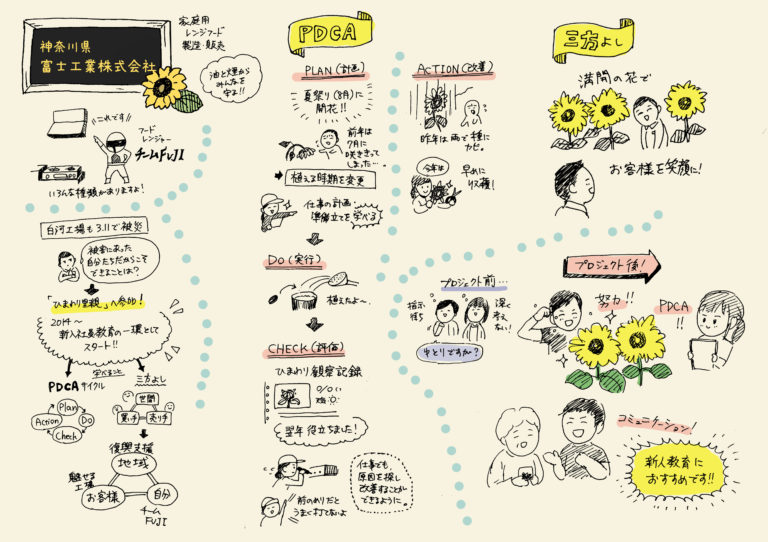 神奈川県
富士工業株式会社
家庭用
レンジフード
製造・販売
油と煙から
みんなを
守る!!
これです!!
フード
レンジャー
チームFUJI
いろんな種類がありますよ!
白河工場も3.11で被災
被害にあった
自分たちだからこそ
できることは?
「ひまわり里親」へ参加!
2014〜
新入社員教育の一環として
スタート!!
学べること
PDCAサイクル
三方よし
Plan
Do
Check
Action
世間
買い手
売り手
復興支援
地域
魅せる
工場
お客様
自分
チーム
FUJI
PDCA
PLAN(計画)
夏祭り(8月)に
開花!!
前年は
7月に
咲ききって
しまった…
植える時期を変更
仕事の計画・
準備立てを学べる
DO(実行)
植えたよ〜。
CHECK(評価)
ひまわり観察記録
翌年役立ちました!
仕事でも、
原因を探し
改善することが
できるように。
前のめりだと
うまく打てないよ
ACTION(改善)
昨年は雨で種に
カビ。
今年は
早めに
収穫!
三方よし
満開の花で
お客様を笑顔に!
プロジェクト前…
指示
待ち
深く
考え
ない!
ゆとりですか?
プロジェクト後!
努力!!
PDCA
!!
コミュニケーション!
新人教育に
おすすめです!!